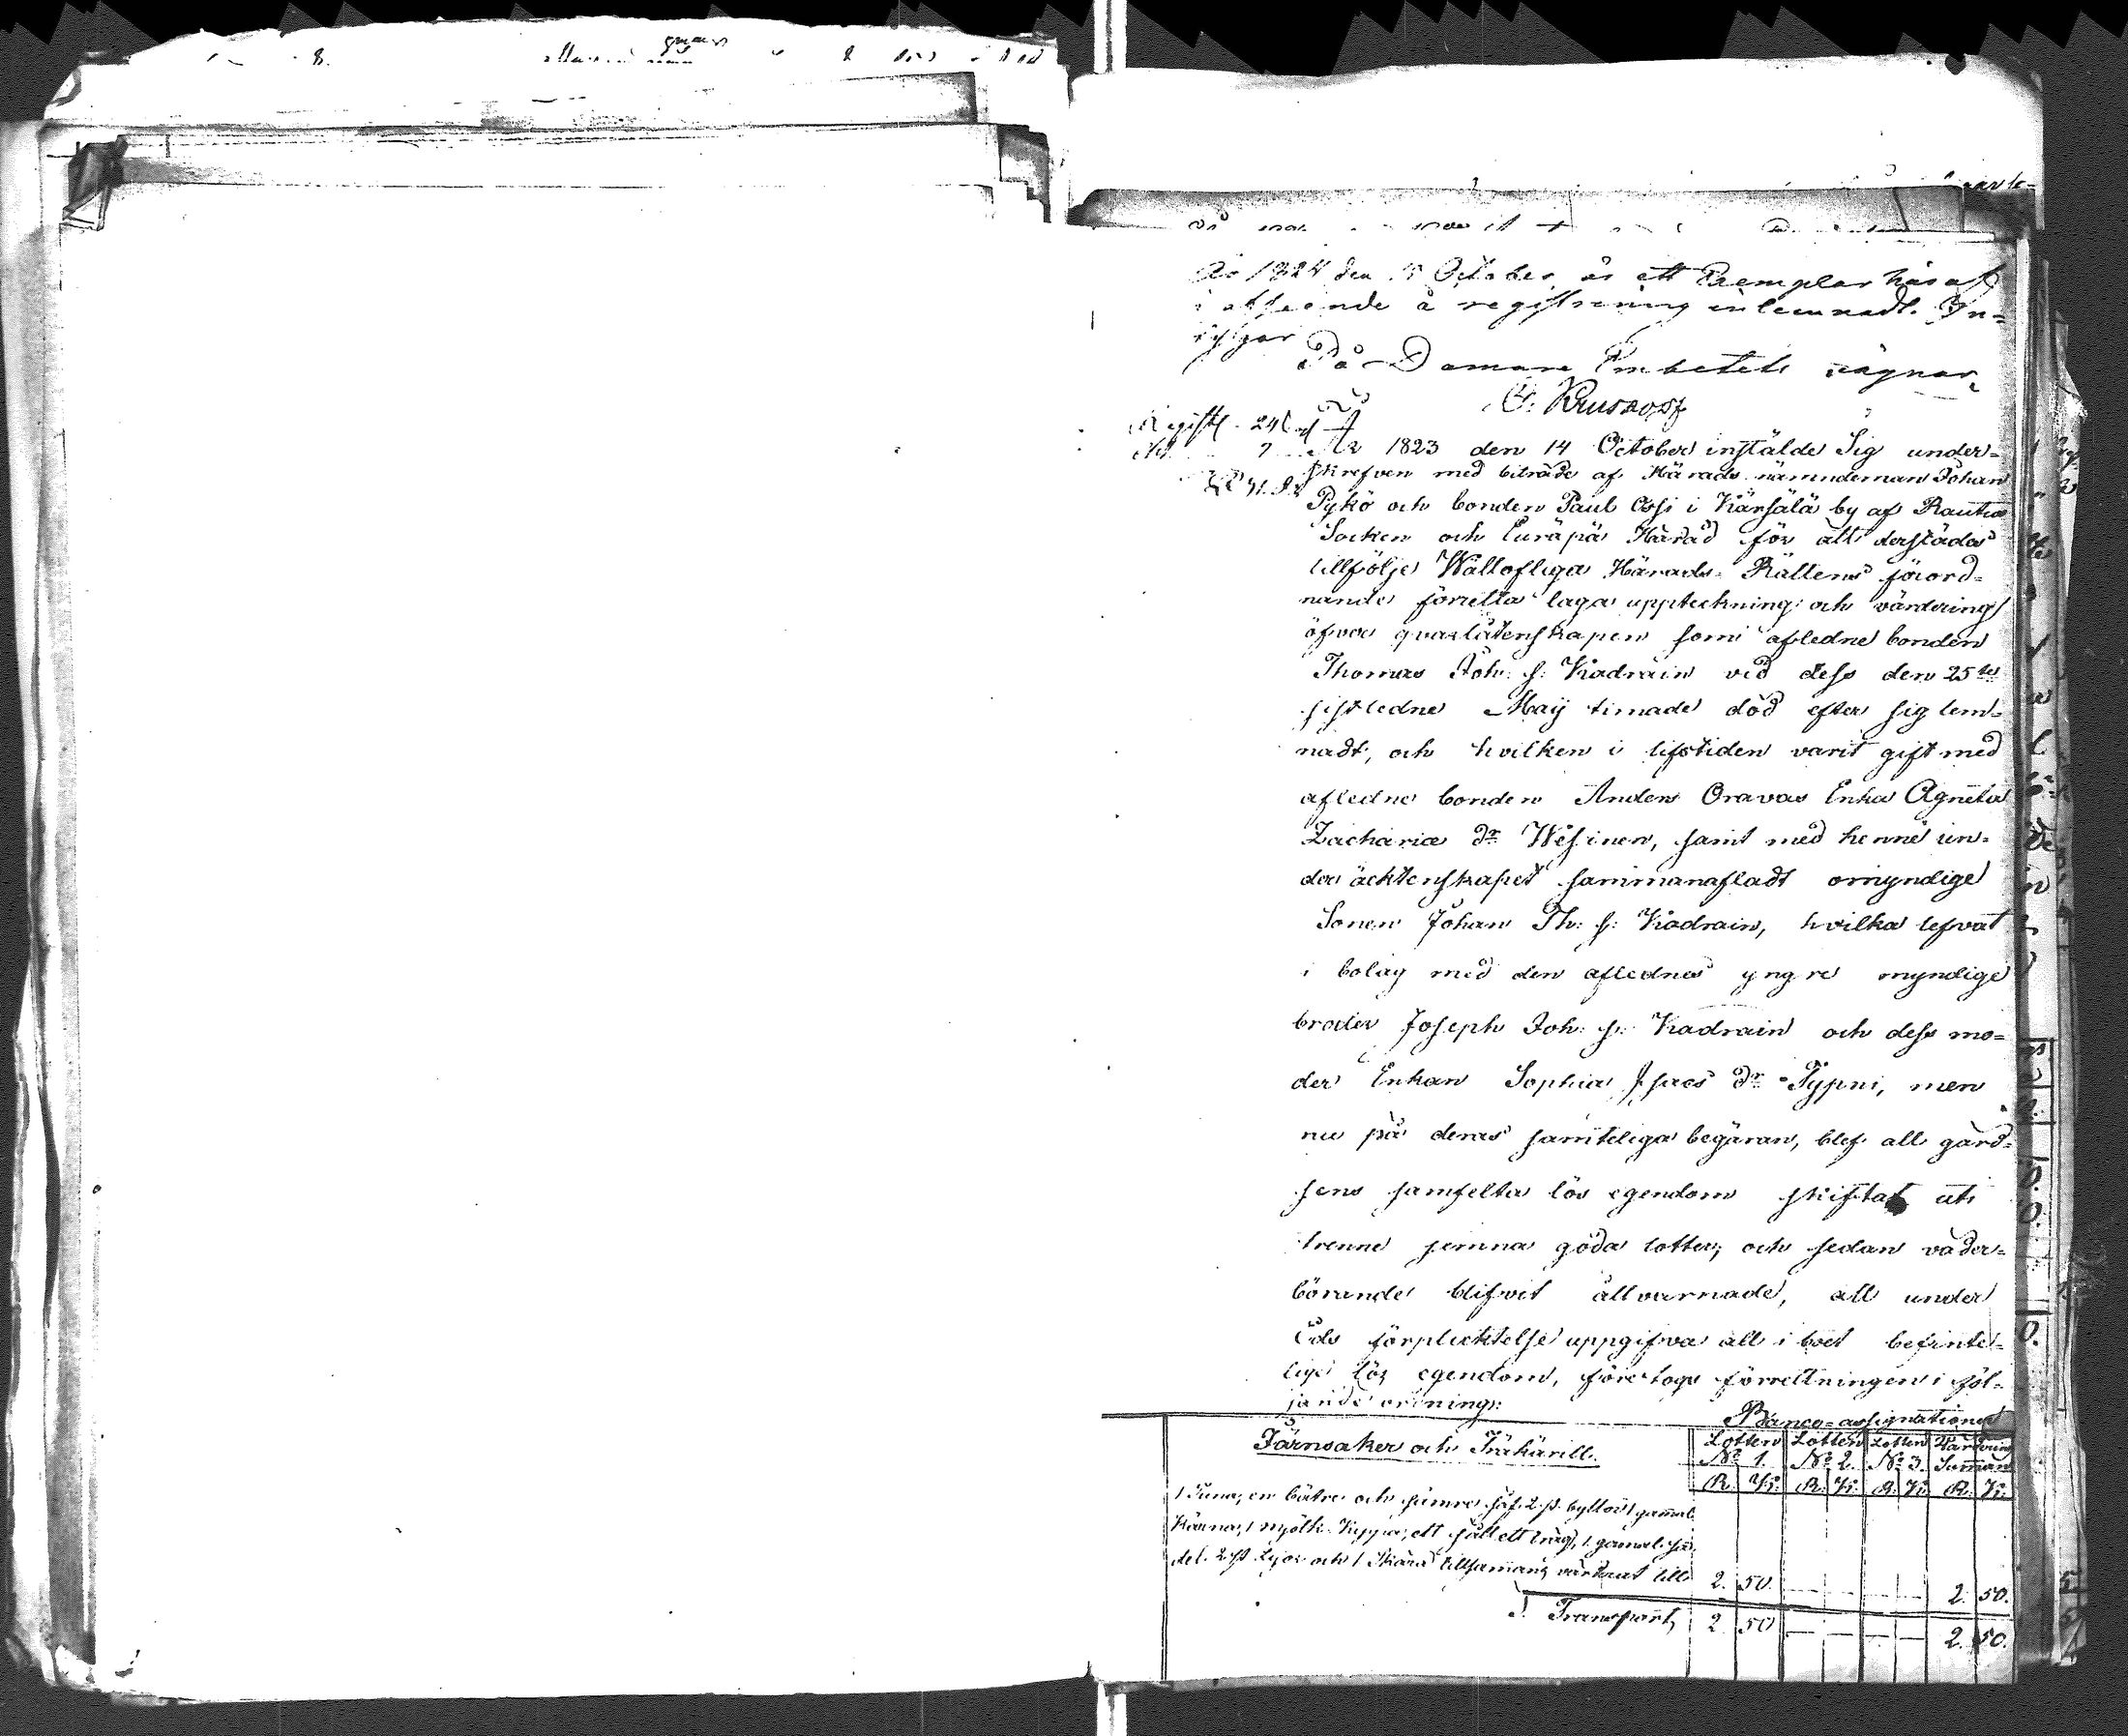 År 1824 den 15 October, är ett Exemplar häraf
i afseende å registrering inlemnadt. In-
tygar
På Domare Embetets vägnar,
C. Kruskopf
År 1823 den 14 October instälde Sig under-
skrefven med biträde af Härads nämndeman Johan
Pykö och bonden Paul Ossi i Kärsälä by af Rautus
Socken och Euräpä Härad för att derstädes
tillfölje Wällofliga Härads-Rättens förord-
nande förrätta laga uppteckning och värdering
öfver qvarlåtenskapen som afledne bonden
Thomas Joh: s: Kadrain vid dess den 25te
sistledne Maij timade död efter sig lem-
nadt, och hvilken i lifstiden varit gift med
afledne bonden Anders Oravas Enka Agneta
Zachariæ dr Wesinen, samt med henne un-
der äcktenskapet sammanafladt omyndige
Sonen Johan Th: s: Kadrain, hvilka lefvat
i bolag med den aflednes yngre myndige
broder Joseph Joh: s: Kadrain och dess mo-
der Enkan Sophia Isacs dr Typni, men
nu på deras samteliga begäran, blef all gård-
sens samfelta lös egendom skiftat uti
trenne jemna goda lotter; och sedan veder-
börande blifvit allvarnade, att under
Eds förplicktelse uppgifva all i boet befinte-
lige lös egendom, företogs förrettningen i föl-
jande ordning:
Banco-assignationer
Järnsaker och Träkärill.
Lotten No 1. Lotten No 2. Lotten No 3. Värderings Summan
R. K. R. K. R. K. R. K.
1 Tuna, en bätre och sämre så, 2 st. byttor, 1 gammal
Kärna, 1 mjölk Kyppa, ett såll ett tråg, 1 gammal
del. 2 st. Lyor och 1 Skära tillsammans värderat till 2. 50. 2. 50.
Transport, 2. 50 2. 50.